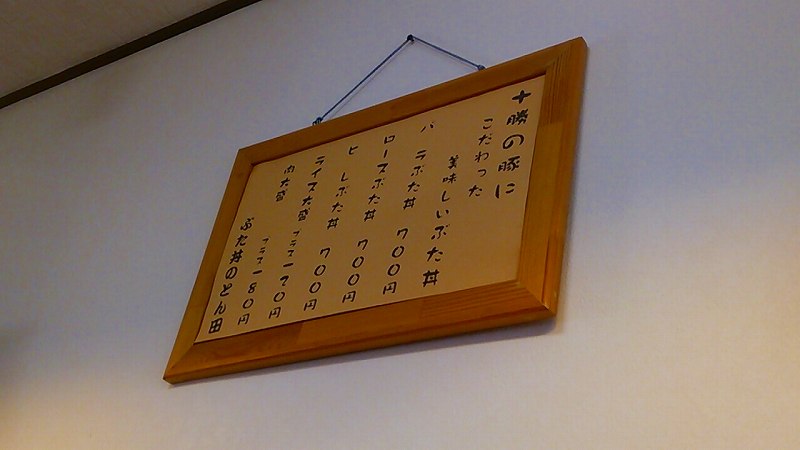 十勝の豚に
こだわった
美味しいぶた丼
バラぶた丼 700円
ロースぶた丼 700円
ヒレぶた丼 700円
ライス大盛 プラス一20円
肉大盛 プラス一80円
ぶた丼のとん田